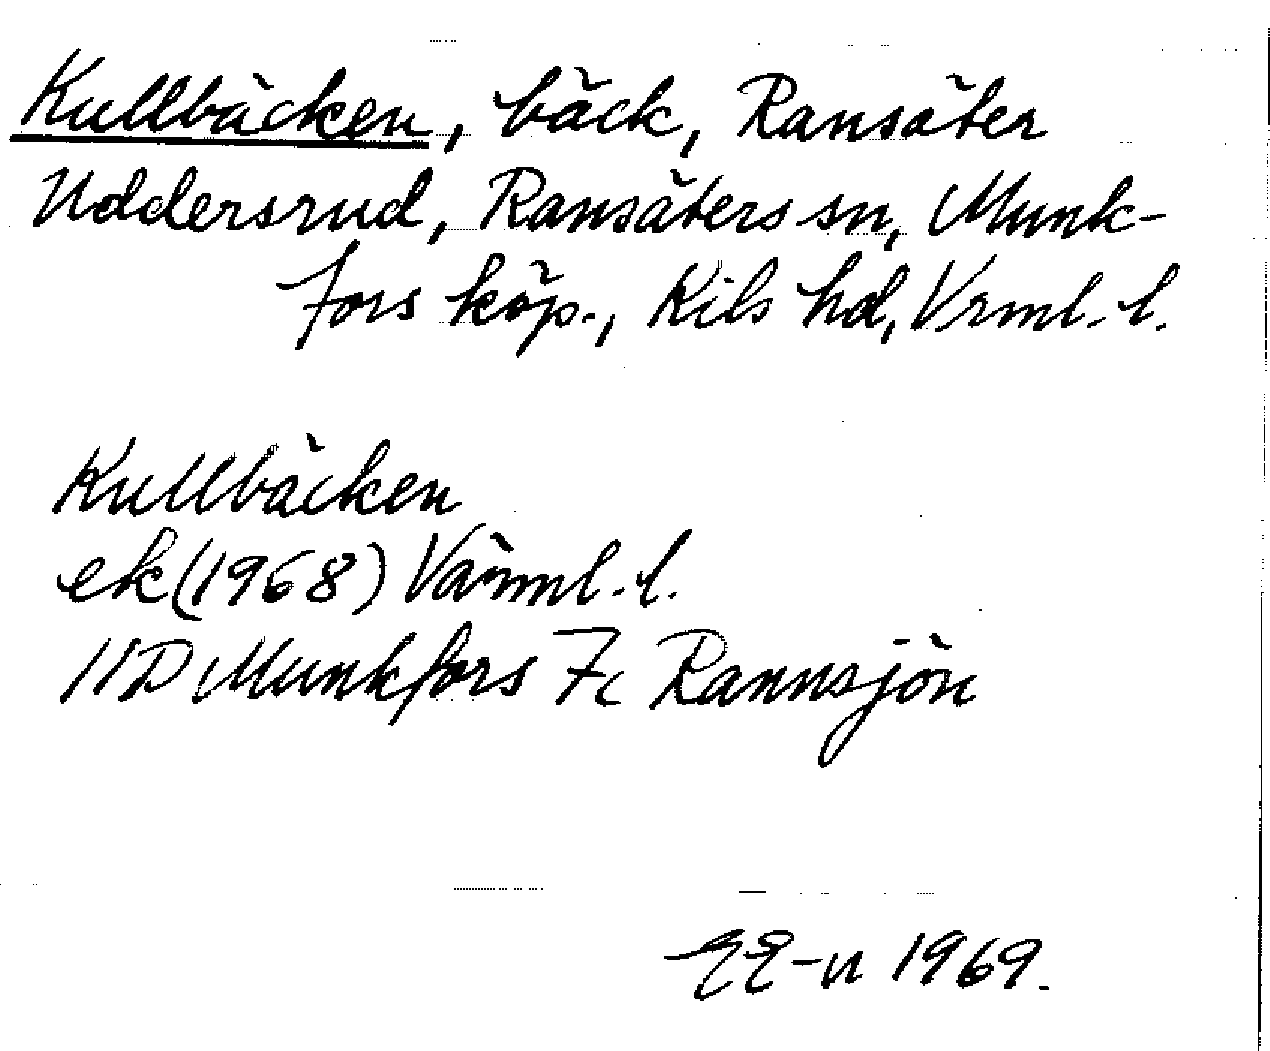 Kullbäcken, bäck, Ransäter
Uddersrud, Ransäters sn, Munk-
fors köp., Kils hd, Vrml. l.
Kullbäcken
ek (1968) Värml. l.
11D Munkfors 7c Rannsjön
EE-n 1969.